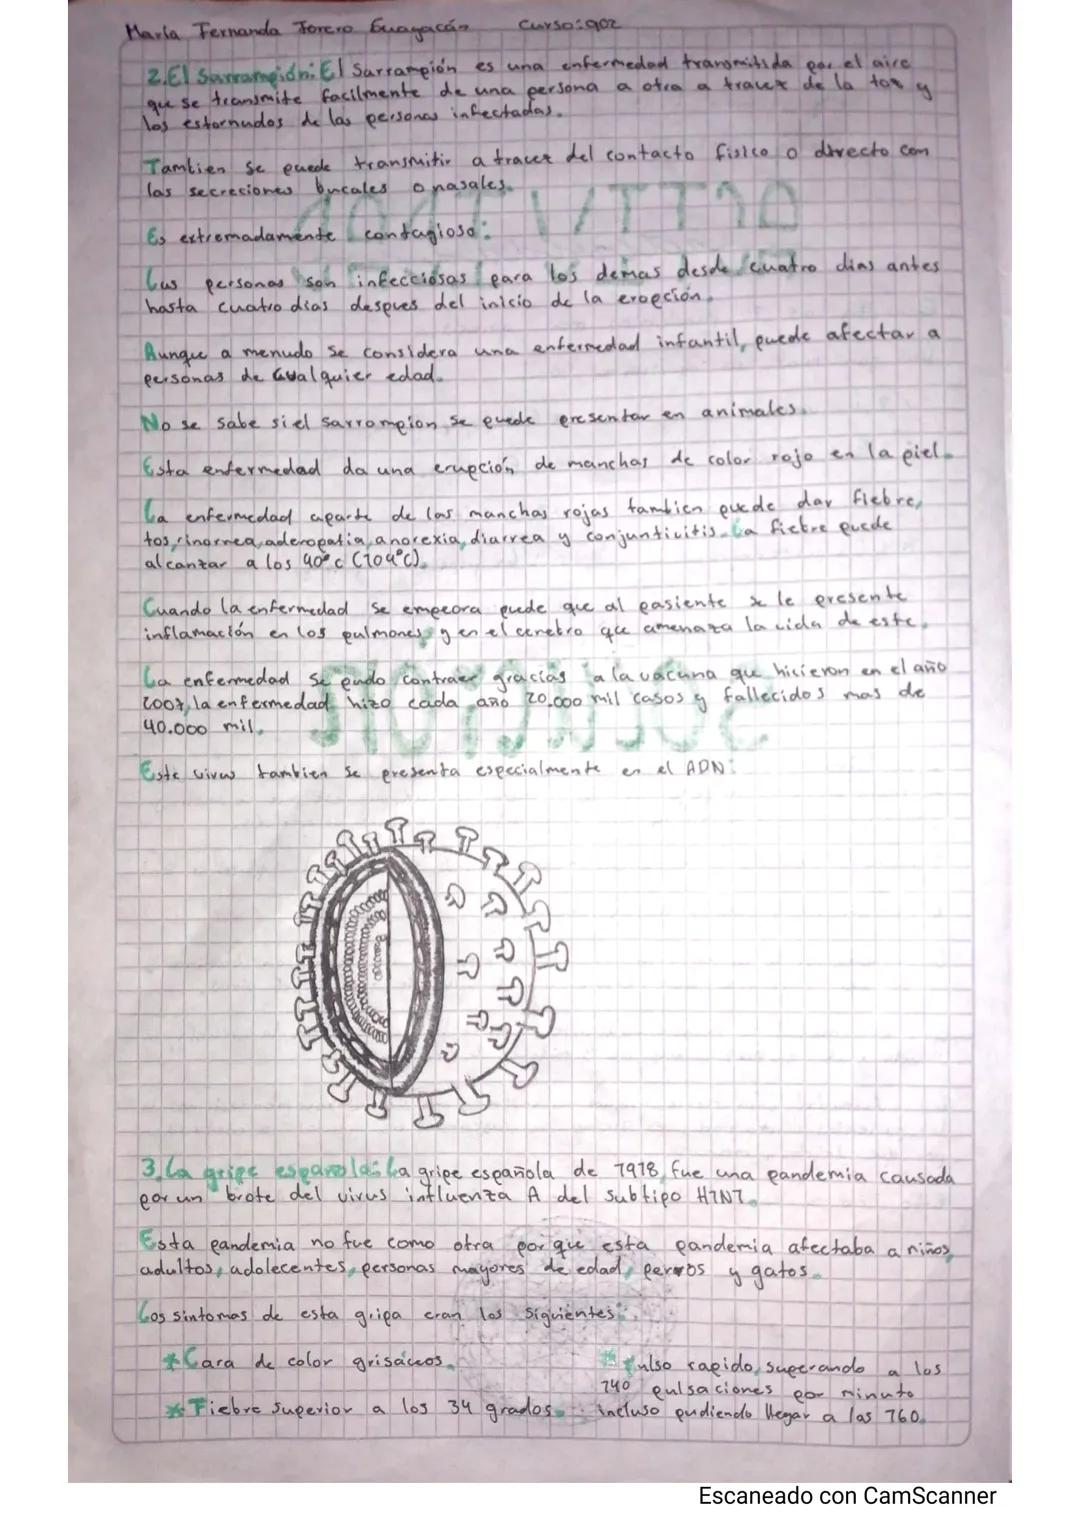 María Fernanda Forero Guayacán Curso:902
2.El Sarrampión: El Sarrampión es una enfermedad transmitida por el aire
que se transmite facilmente de una persona a otra a travez de la tos y
los estornudos de las personas infectadas.
Tambien se puede transmitir a travez del contacto fisico o directo con
las secreciones bucales o nasales.
Es extremadamente contagioso:
Las personas son infecciosas para los demas desde cuatro dias antes
hasta cuatro dias despues del inicio de la erupción.
Aunque a menudo se considera una enfermedad infantil, puede afectar a
personas de cualquier edad.
No se sabe si el sarrampion se puede presentar en animales.
Esta enfermedad da una erupción de manchas de color rojo en la piel.
La enfermedad aparte de las manchas rojas tambien puede dar fiebre,
tos, rinorrea, aderopatia, anorexia, diarrea y conjuntivitis. La fiebre puede
alcanzar a los 40°c (104°c).
Cuando la enfermedad se empeora puede que al pasiente se le presente
inflamación en los pulmones y en el cerebro que amenaza la vida de este.
La enfermedad se pudo contraer gracias a la vacuna que hicieron en el año
2007, la enfermedad hizo cada año 20.000 mil casos y fallecidos mas de
40.000 mil.
Este virus tambien se presenta especialmente en el ADN:
3.La gripe española: La gripe española de 1918, fue una pandemia causada
por un brote del virus influenza A del subtipo H1N1.
Esta pandemia no fue como otra porque esta pandemia afectaba a niños,
adultos, adolecentes, personas mayores de edad, perros y gatos.
Los sintomas de esta gripa eran los siguientes:
*Cara de color grisáceos.
*Fiebre superior a los 34 grados.
*Pulso rapido, superando a los
140 pulsaciones por minuto
incluso pudiendo llegar a las 160.
Escaneado con CamScanner